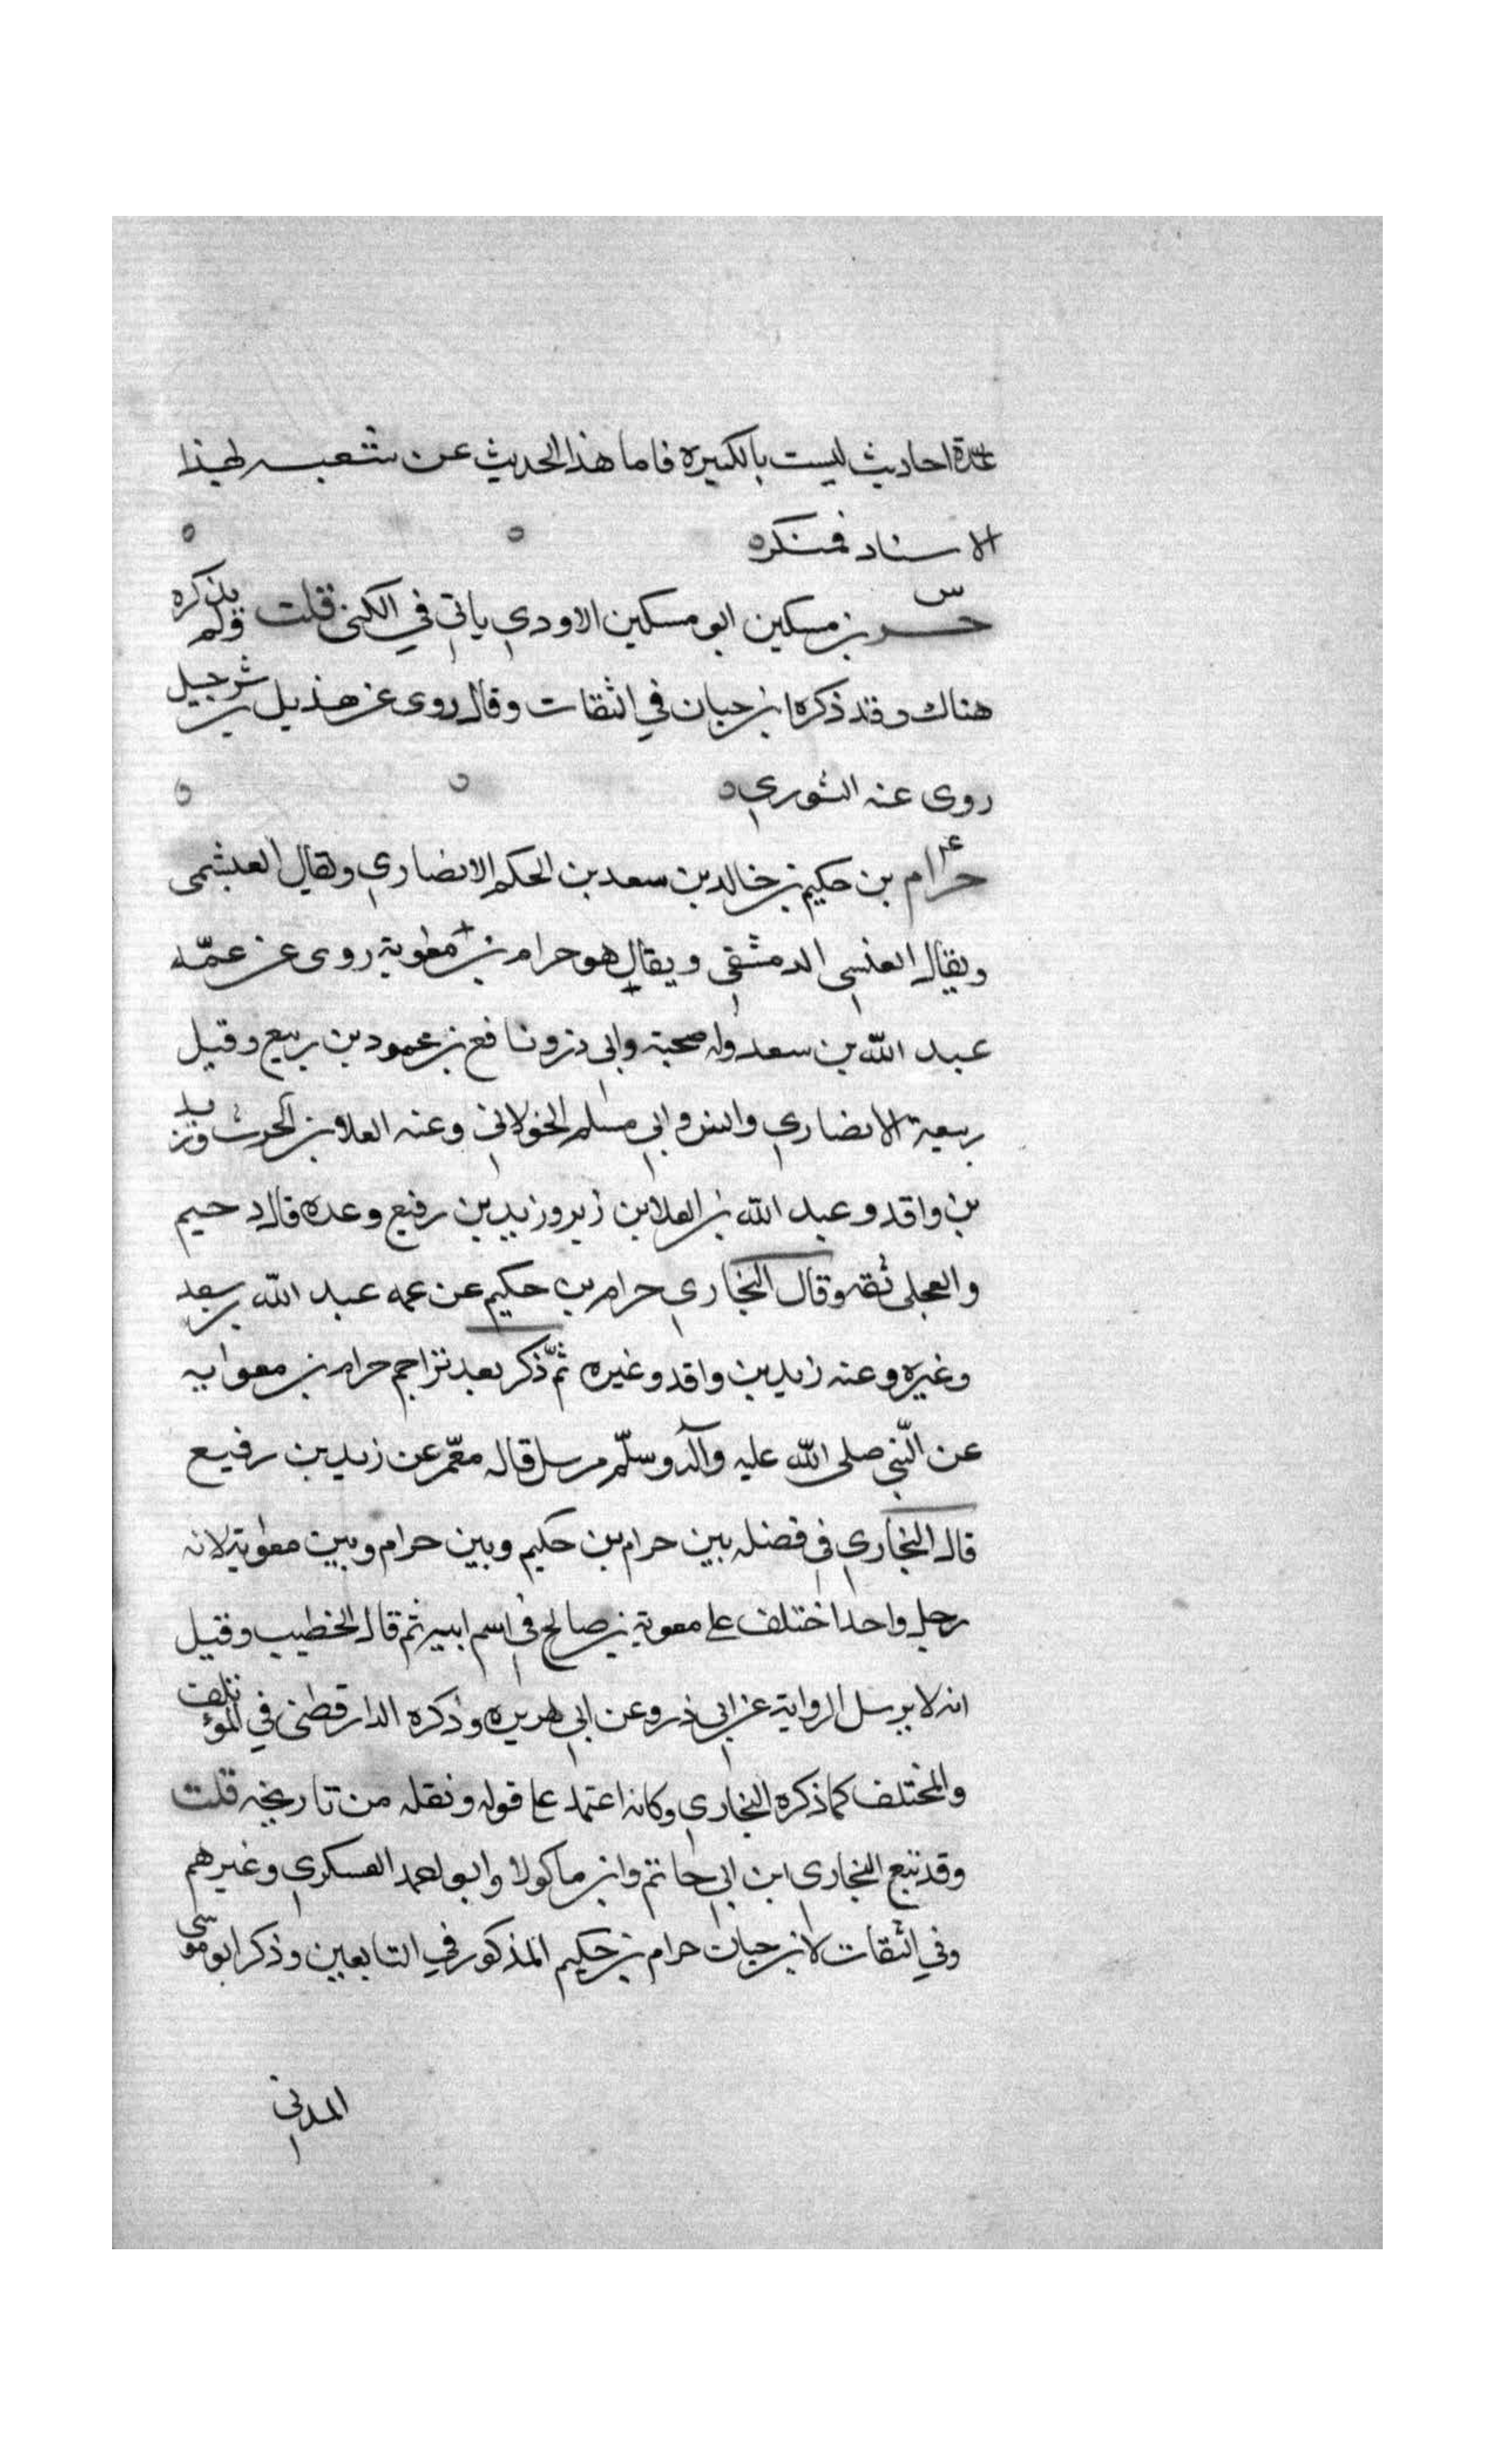 عدة احاديث ليست بالكبيره فاما هذا الحديث عن شعبه بهذا
الاسناد فمنكره
س
حر بن مسكين ابو مسكين الاودي ياتي في الكنى قلت ولم يذكره
هناك وقد ذكره ابن حبان في الثقات وقال روى عن هذيل بن شرحبيل
روى عنه الثوري
عـ
حرام بن حكيم بن خالد بن سعد بن الحكم الانصاري ويقال العبشمى
ويقال العنسى الدمشقى ويقال هو حرام بن معوية روى عن عمّه
عبد الله بن سعد وله صحبة وابى ذر ونافع بن محمود بن ربيع وقيل
ربيعة الانصاري وانس وابى مسلم الخولانى وعنه العلا بن الحرث وزيد
بن واقد وعبد الله بن العلا بن زبر وزيد بن رفيع وعده قال دحيم
والعجلى ثقه وقال البخارى حرام بن حكيم عن عمه عبد الله بن سعد
وغيره وعنه زيد بن واقد وغيره ثمّ ذكر بعد تراجم حرام بن معوايه
عن النّبى صلى الله عليه وآله وسلّم مرسل قاله معمّر عن زيد بن رفيع
قال البخارى فى فصله بين حرام بن حكيم وبين حرام وبين معوية لانه
رجل واحد اختلف على معوية بن صالح فى اسم ابيه ثم قال الخطيب وقيل
انه لا يرسل الرواية عن ابى ذر وعن ابى هريره وذكره الدارقطنى في المؤتلف
والمختلف كما ذكره البخارى وكانه اعتمد على قوله ونقله من تاريخه قلت
وقد تبع البخارى ابن ابى حاتم وابن ماكولا وابو احمد العسكرى وغيرهم
وفي الثقات لابن حبان حرام بن حكيم المذكور في التابعين وذكر ابو موسى
المدنى